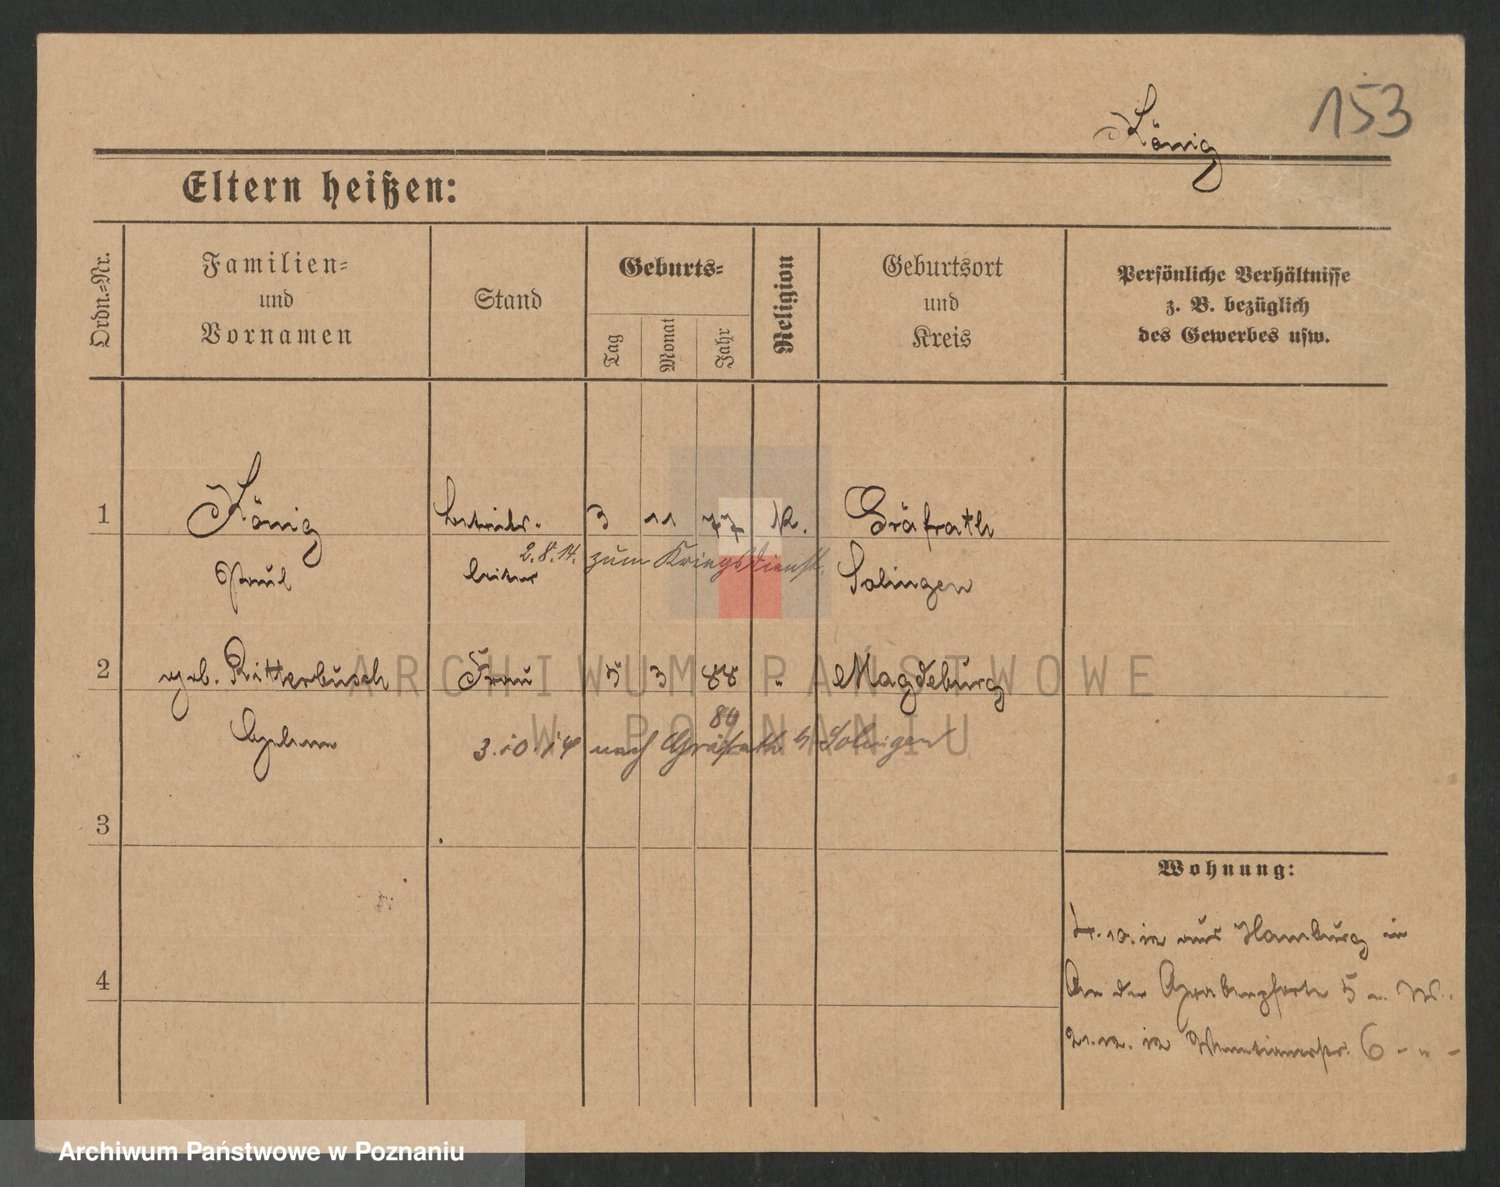 153
König
Eltern heißen:
Ordn.-Nr.
Familien-
und
Vornamen
Stand
Geburts-
Tag
Monat
Jahr
Religion
Geburtsort
und
Kreis
Persönliche Verhältnisse
z. B. bezüglich
des Gewerbes usw.
1 König Betriebs- 3 11 77 k. Gräfrath
2.8.14. zum Kriegsdienst.
Paul leiter Solingen
2 geb. Ritterbusch Frau 5 3 88 " Magdeburg
3.10.14 nach Gräfrath Solingen
3
Wohnung:
4.10.12 aus Hamburg in
An der 5
4
21.12.12 6 - " -
ARCHIWUM PAŃSTWOWE
W POZNANIU
Archiwum Państwowe w Poznaniu